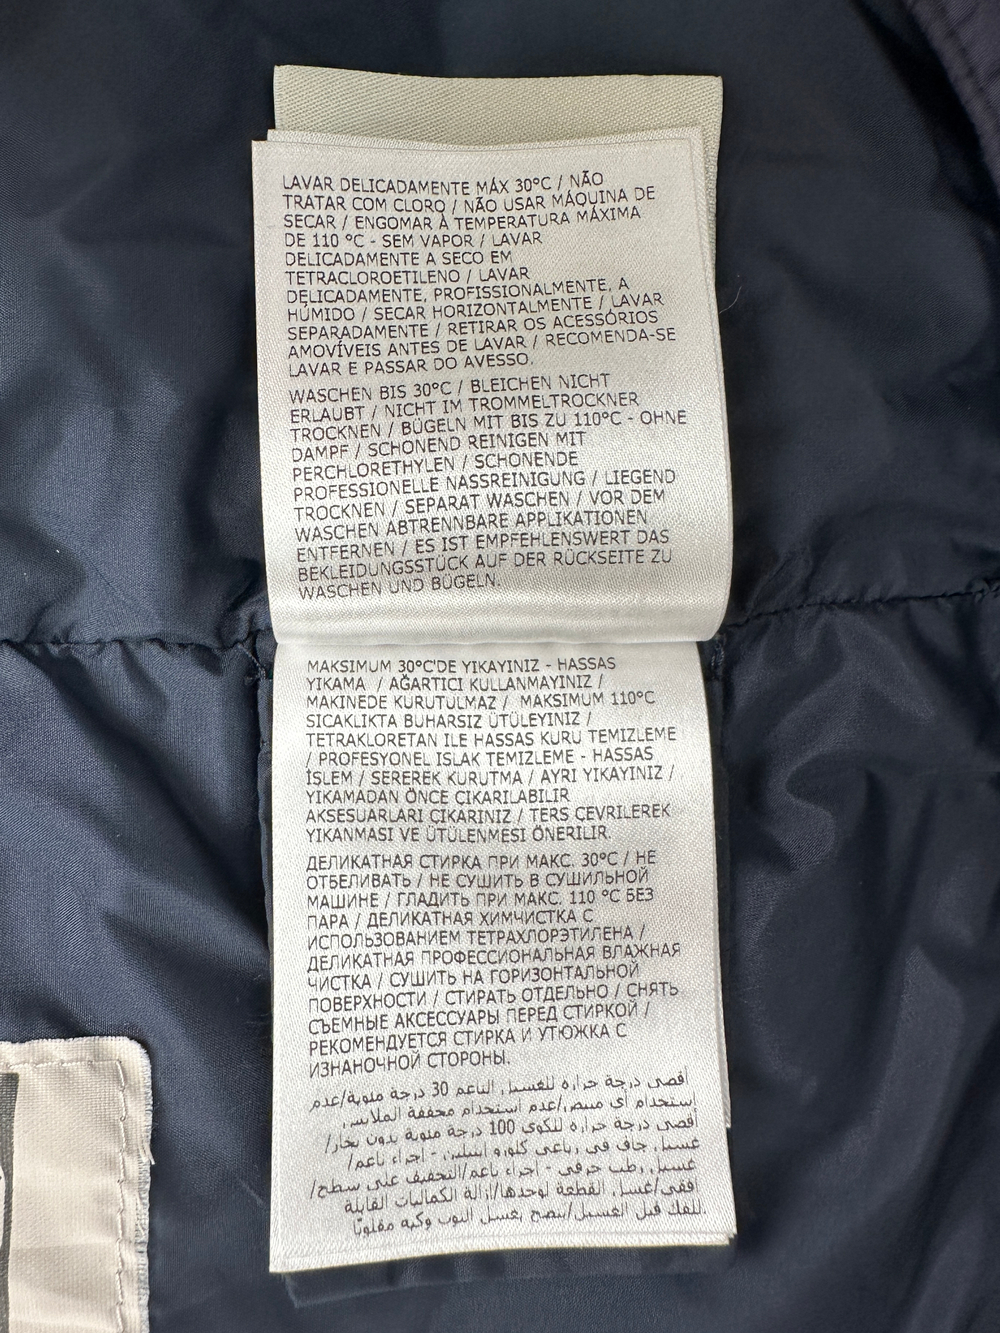 LAVAR DELICADAMENTE MÁX 30°C / NÃO
TRATAR COM CLORO / NÃO USAR MÁQUINA DE
SECAR / ENGOMAR À TEMPERATURA MÁXIMA
DE 110 °C - SEM VAPOR / LAVAR
DELICADAMENTE A SECO EM
TETRACLOROETILENO / LAVAR
DELICADAMENTE, PROFISSIONALMENTE, A
HÚMIDO / SECAR HORIZONTALMENTE / LAVAR
SEPARADAMENTE / RETIRAR OS ACESSÓRIOS
AMOVÍVEIS ANTES DE LAVAR / RECOMENDA-SE
LAVAR E PASSAR DO AVESSO.
WASCHEN BIS 30°C / BLEICHEN NICHT
ERLAUBT / NICHT IM TROMMELTROCKNER
TROCKNEN / BÜGELN MIT BIS ZU 110°C - OHNE
DAMPF / SCHONEND REINIGEN MIT
PERCHLORETHYLEN / SCHONENDE
PROFESSIONELLE NASSREINIGUNG / LIEGEND
TROCKNEN / SEPARAT WASCHEN / VOR DEM
WASCHEN ABTRENNBARE APPLIKATIONEN
ENTFERNEN / ES IST EMPFEHLENSWERT DAS
BEKLEIDUNGSSTÜCK AUF DER RÜCKSEITE ZU
WASCHEN UND BÜGELN.
MAKSIMUM 30°C'DE YIKAYINIZ - HASSAS
YIKAMA / AĞARTICI KULLANMAYINIZ /
MAKINEDE KURUTULMAZ / MAKSIMUM 110°C
SICAKLIKTA BUHARSIZ ÜTÜLEYINIZ /
TETRAKLORETAN ILE HASSAS KURU TEMIZLEME
/ PROFESYONEL ISLAK TEMIZLEME - HASSAS
İŞLEM / SEREREK KURUTMA / AYRI YIKAYINIZ /
YIKAMADAN ÖNCE ÇIKARILABILIR
AKSESUARLARI ÇIKARINIZ / TERS ÇEVRILEREK
YIKANMASI VE ÜTÜLENMESI ÖNERILIR.
ДЕЛИКАТНАЯ СТИРКА ПРИ МАКС. 30°C / НЕ
ОТБЕЛИВАТЬ / НЕ СУШИТЬ В СУШИЛЬНОЙ
МАШИНЕ / ГЛАДИТЬ ПРИ МАКС. 110 °C БЕЗ
ПАРА / ДЕЛИКАТНАЯ ХИМЧИСТКА С
ИСПОЛЬЗОВАНИЕМ ТЕТРАХЛОРЭТИЛЕНА /
ДЕЛИКАТНАЯ ПРОФЕССИОНАЛЬНАЯ ВЛАЖНАЯ
ЧИСТКА / СУШИТЬ НА ГОРИЗОНТАЛЬНОЙ
ПОВЕРХНОСТИ / СТИРАТЬ ОТДЕЛЬНО / СНЯТЬ
СЪЕМНЫЕ АКСЕССУАРЫ ПЕРЕД СТИРКОЙ /
РЕКОМЕНДУЕТСЯ СТИРКА И УТЮЖКА С
ИЗНАНОЧНОЙ СТОРОНЫ.
أقصى درجة حرارة للغسيل الناعم 30 درجة مئوية/عدم
إستخدام أي مبيض/عدم إستخدام مجففة الملابس
أقصى درجة حرارة للكوى 100 درجة مئوية بدون بخار/
غسيل جاف في رباعي كلورو إيثيلين - إجراء ناعم/
غسيل رطب حرفي - إجراء ناعم/التجفيف على سطح/
أفقي/غسل القطعة لوحدها/إزالة الكماليات القابلة
للفك قبل الغسيل/ينصح بغسل الثوب وكيه مقلوبًا.